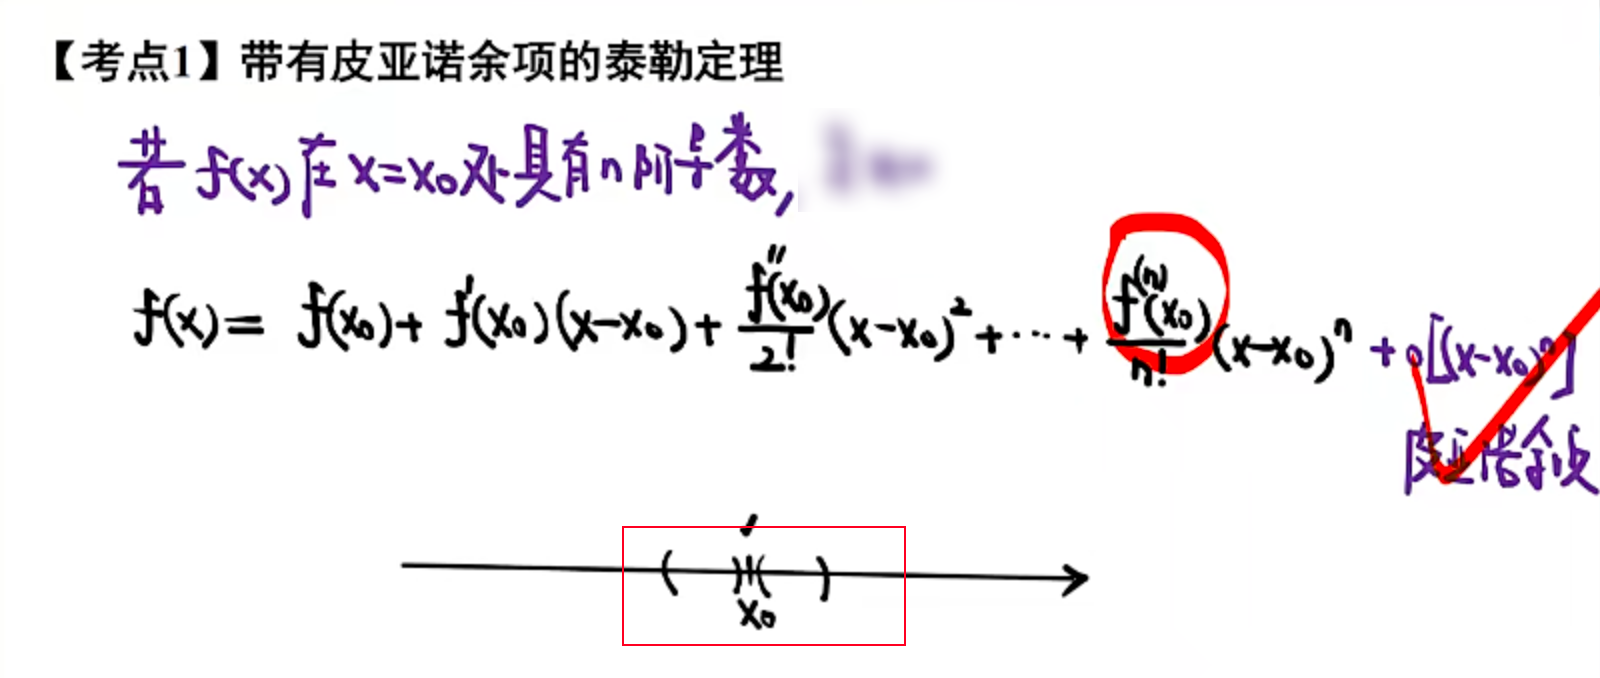 【考点1】带有皮亚诺余项的泰勒定理
若 f(x) 在 x=x₀ 处具有 n 阶导数,
f(x) = f(x₀) + f'(x₀)(x-x₀) + f''(x₀)/2! (x-x₀)² + ⋯ + f⁽ⁿ⁾(x₀)/n! (x-x₀)ⁿ + o[(x-x₀)ⁿ]
皮亚诺余项
( )|( )
x₀